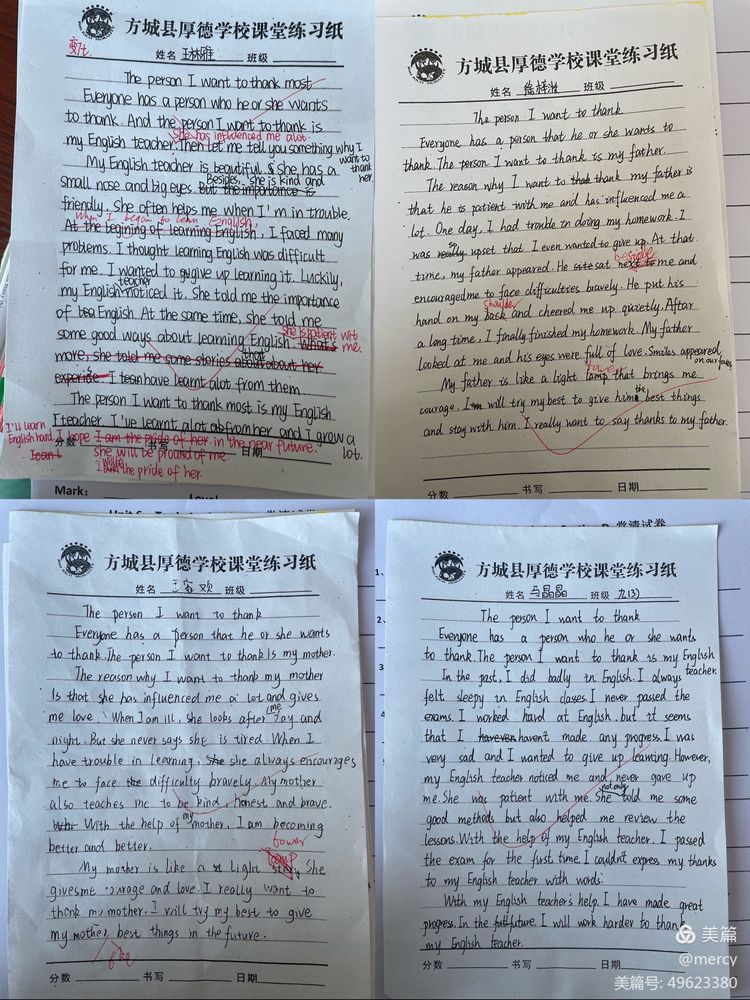 方城县厚德学校课堂练习纸
变化
姓名 王林雅 班级
The person I want to thank most
Everyone has a person who he or she wants
to thank. And the person I want to thank is
She has influenced me alot.
my English teacher. Then let me tell you something why I
want to thank her.
My English teacher is beautiful & She has a
small nose and big eyes. But the importance is
Besides, she is kind and
friendly. She often helps me when I'm in trouble.
When I began to learn English,
At the begining of learning English. I faced many
problems. I thought learning English was difficult
for me. I wanted to give up learning it. Luckily,
my English teacher noticed it. She told me the importance
of English. At the same time, she told me
She is patient wit me.
some good ways about learning English. What's
more, she told me some stories about her
that
I have learnt alot from them.
The person I want to thank most is my English
teacher I've learnt alot from her and I grow a lot.
I'll learn English hard. I hope I am the pride of her. in the near future.
she will be pround of me.
I the pride of her.
分数 书写 日期
方城县厚德学校课堂练习纸
姓名 班级
The person I want to thank
Everyone has a person that he or she wants to
thank. The person I want to thank is my father.
The reason why I want to thank my father is
that he is patient with me and has influenced me a
lot. One day, I had trouble in doing my homework. I
was so upset that I even wanted to give up. At that
beside
time, my father appeared. He sat next to me and
encouraged me to face difficulties bravely. He put his
shoulder
hand on my back and cheered me up quietly. After
a long time, I finally finished my homework. My father
looked at me and his eyes were full of love. Smiles appeared
on our faces
My father is like a light lamp that brings me
courage. I will try my best to give him the best things
and stay with him. I really want to say thanks to my father.
分数 书写 日期
Mark:
方城县厚德学校课堂练习纸
姓名 王家欢 班级
The person I want to thank
Everyone has a person that he or she wants
to thank. The person I want to thank Is my mother.
The reason why I want to thank my mother
Is that she has influenced me a lot and gives
me love. When I am ill, she loobs after me day and
night. But she never says she is tired. When I
have trouble in learning, she always encourages
me to face difficulty bravely. My mother
also teaches me to be kind, honest and brave.
With the help of my mother, I am becoming
better and better.
tower
My mother is like a Light She
gives me courage and love. I really want to
thank my mother. I will try my best to give
my mother best things in the future.
the
分数 书写 日期
常清试卷
方城县厚德学校课堂练习纸
姓名 马晶晶 班级 九(3)
The person I want to thank
Everyone has a person who he or she wants
to thank. The person I want to thank is my English
teacher.
In the past, I did badly in English. I always
felt sleepy in English classes. I never passed the
exams. I worked hard at English, but it seems
that I haven't made any progress. I was
very sad and I wanted to give up learning. However,
my English teacher noticed me and never gave up
me. She was patient with me. She not only told me some
good methods but also helped me review the
lessons. With the help of my English teacher, I passed
the exam for the first time. I couldn't express my thanks
to my English teacher with words.
With my English teacher's help. I have made great
progress. In the future, I will work harder to thank
my English teacher.
分数 书写 日期
美篇
@mercy
美篇号: 49623380